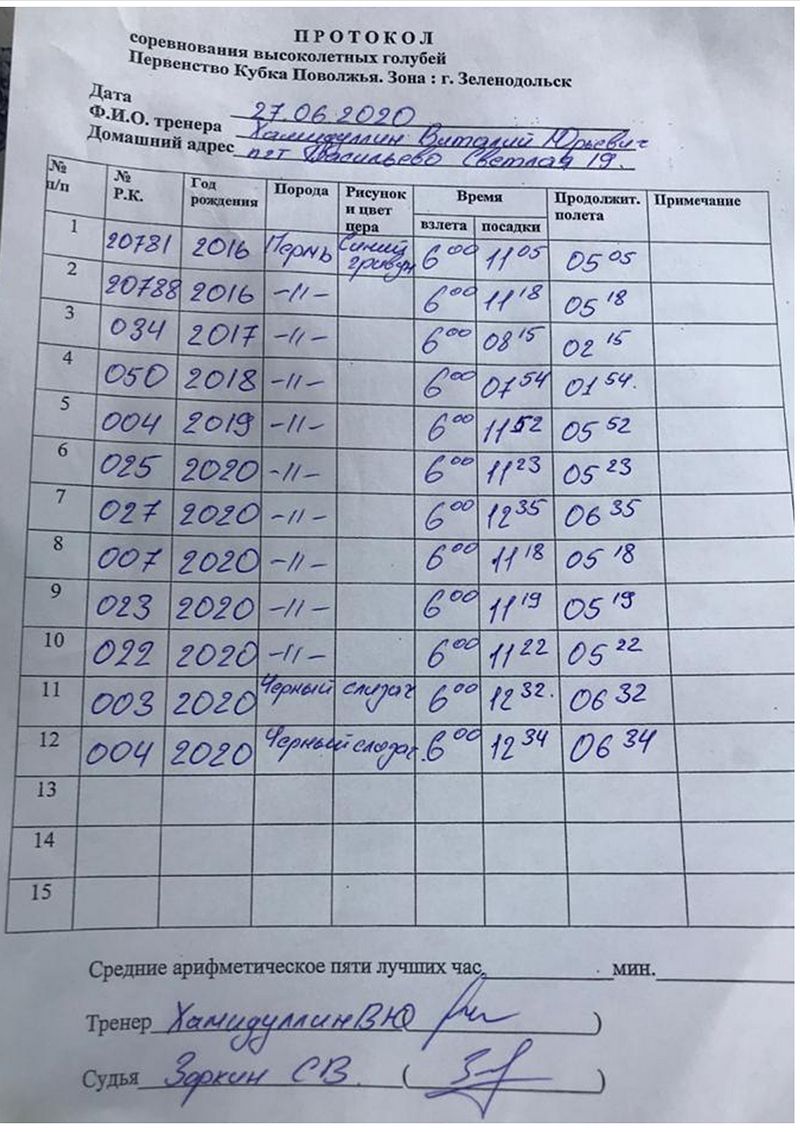 ПРОТОКОЛ
соревнования высоколетных голубей
Первенство Кубка Поволжья. Зона : г. Зеленодольск
Дата 27.06.2020
Ф.И.О. тренера Хамидуллин Виталий Юрьевич
Домашний адрес пгт Васильево Светлая 19.
№ п/п № Р.К. Год рождения Порода Рисунок и цвет пера Время взлета посадки Продолжит. полета Примечание
1 20781 2016 Пермь Синий гривун 6 00 11 05 05 05
2 20788 2016 -//- 6 00 11 18 05 18
3 034 2017 -//- 6 00 08 15 02 15
4 050 2018 -//- 6 00 07 54 01 54.
5 004 2019 -//- 6 00 11 52 05 52
6 025 2020 -//- 6 00 11 23 05 23
7 027 2020 -//- 6 00 12 35 06 35
8 007 2020 -//- 6 00 11 18 05 18
9 023 2020 -//- 6 00 11 19 05 19
10 022 2020 -//- 6 00 11 22 05 22
11 003 2020 Черный 6 00 12 32. 06 32
12 004 2020 Черный 6 00 12 34 06 34
13
14
15
Средние арифметическое пяти лучших час. мин.
Тренер Хамидуллин В Ю )
Судья Зоркин С В. ( )